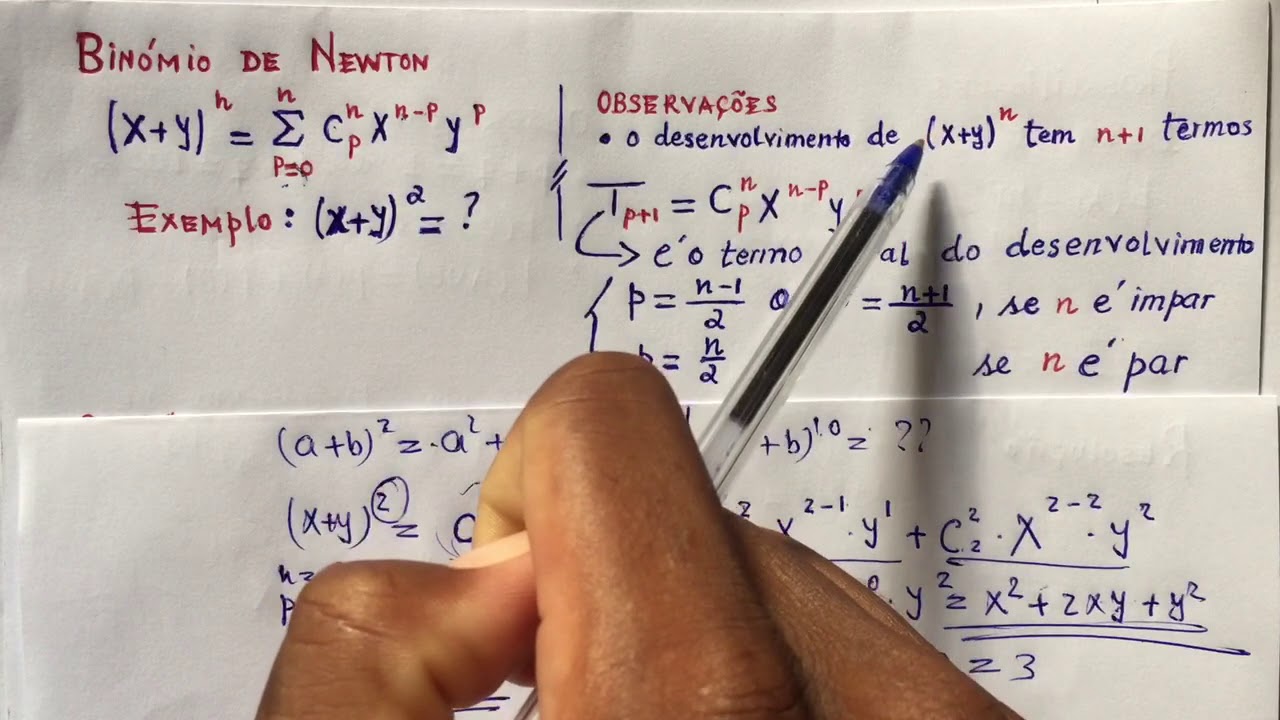 BINÓMIO DE NEWTON
(x+y)ⁿ = Σ_{p=0}^{n} C_p^n x^{n-p} y^p
EXEMPLO: (x+y)² = ?
OBSERVAÇÕES
• o desenvolvimento de (x+y)ⁿ tem n+1 termos
T_{p+1} = C_p^n x^{n-p} y
→ é o termo al do desenvolvimento
p = (n-1)/2 = (n+1)/2 , se n é impar
= n/2 se n é par
(a+b)² = a² + +b)^{10} = ??
(x+y)² = C x^{2-1} · y¹ + C_2^2 · x^{2-2} · y²
· y² = x² + 2xy + y²
= 3